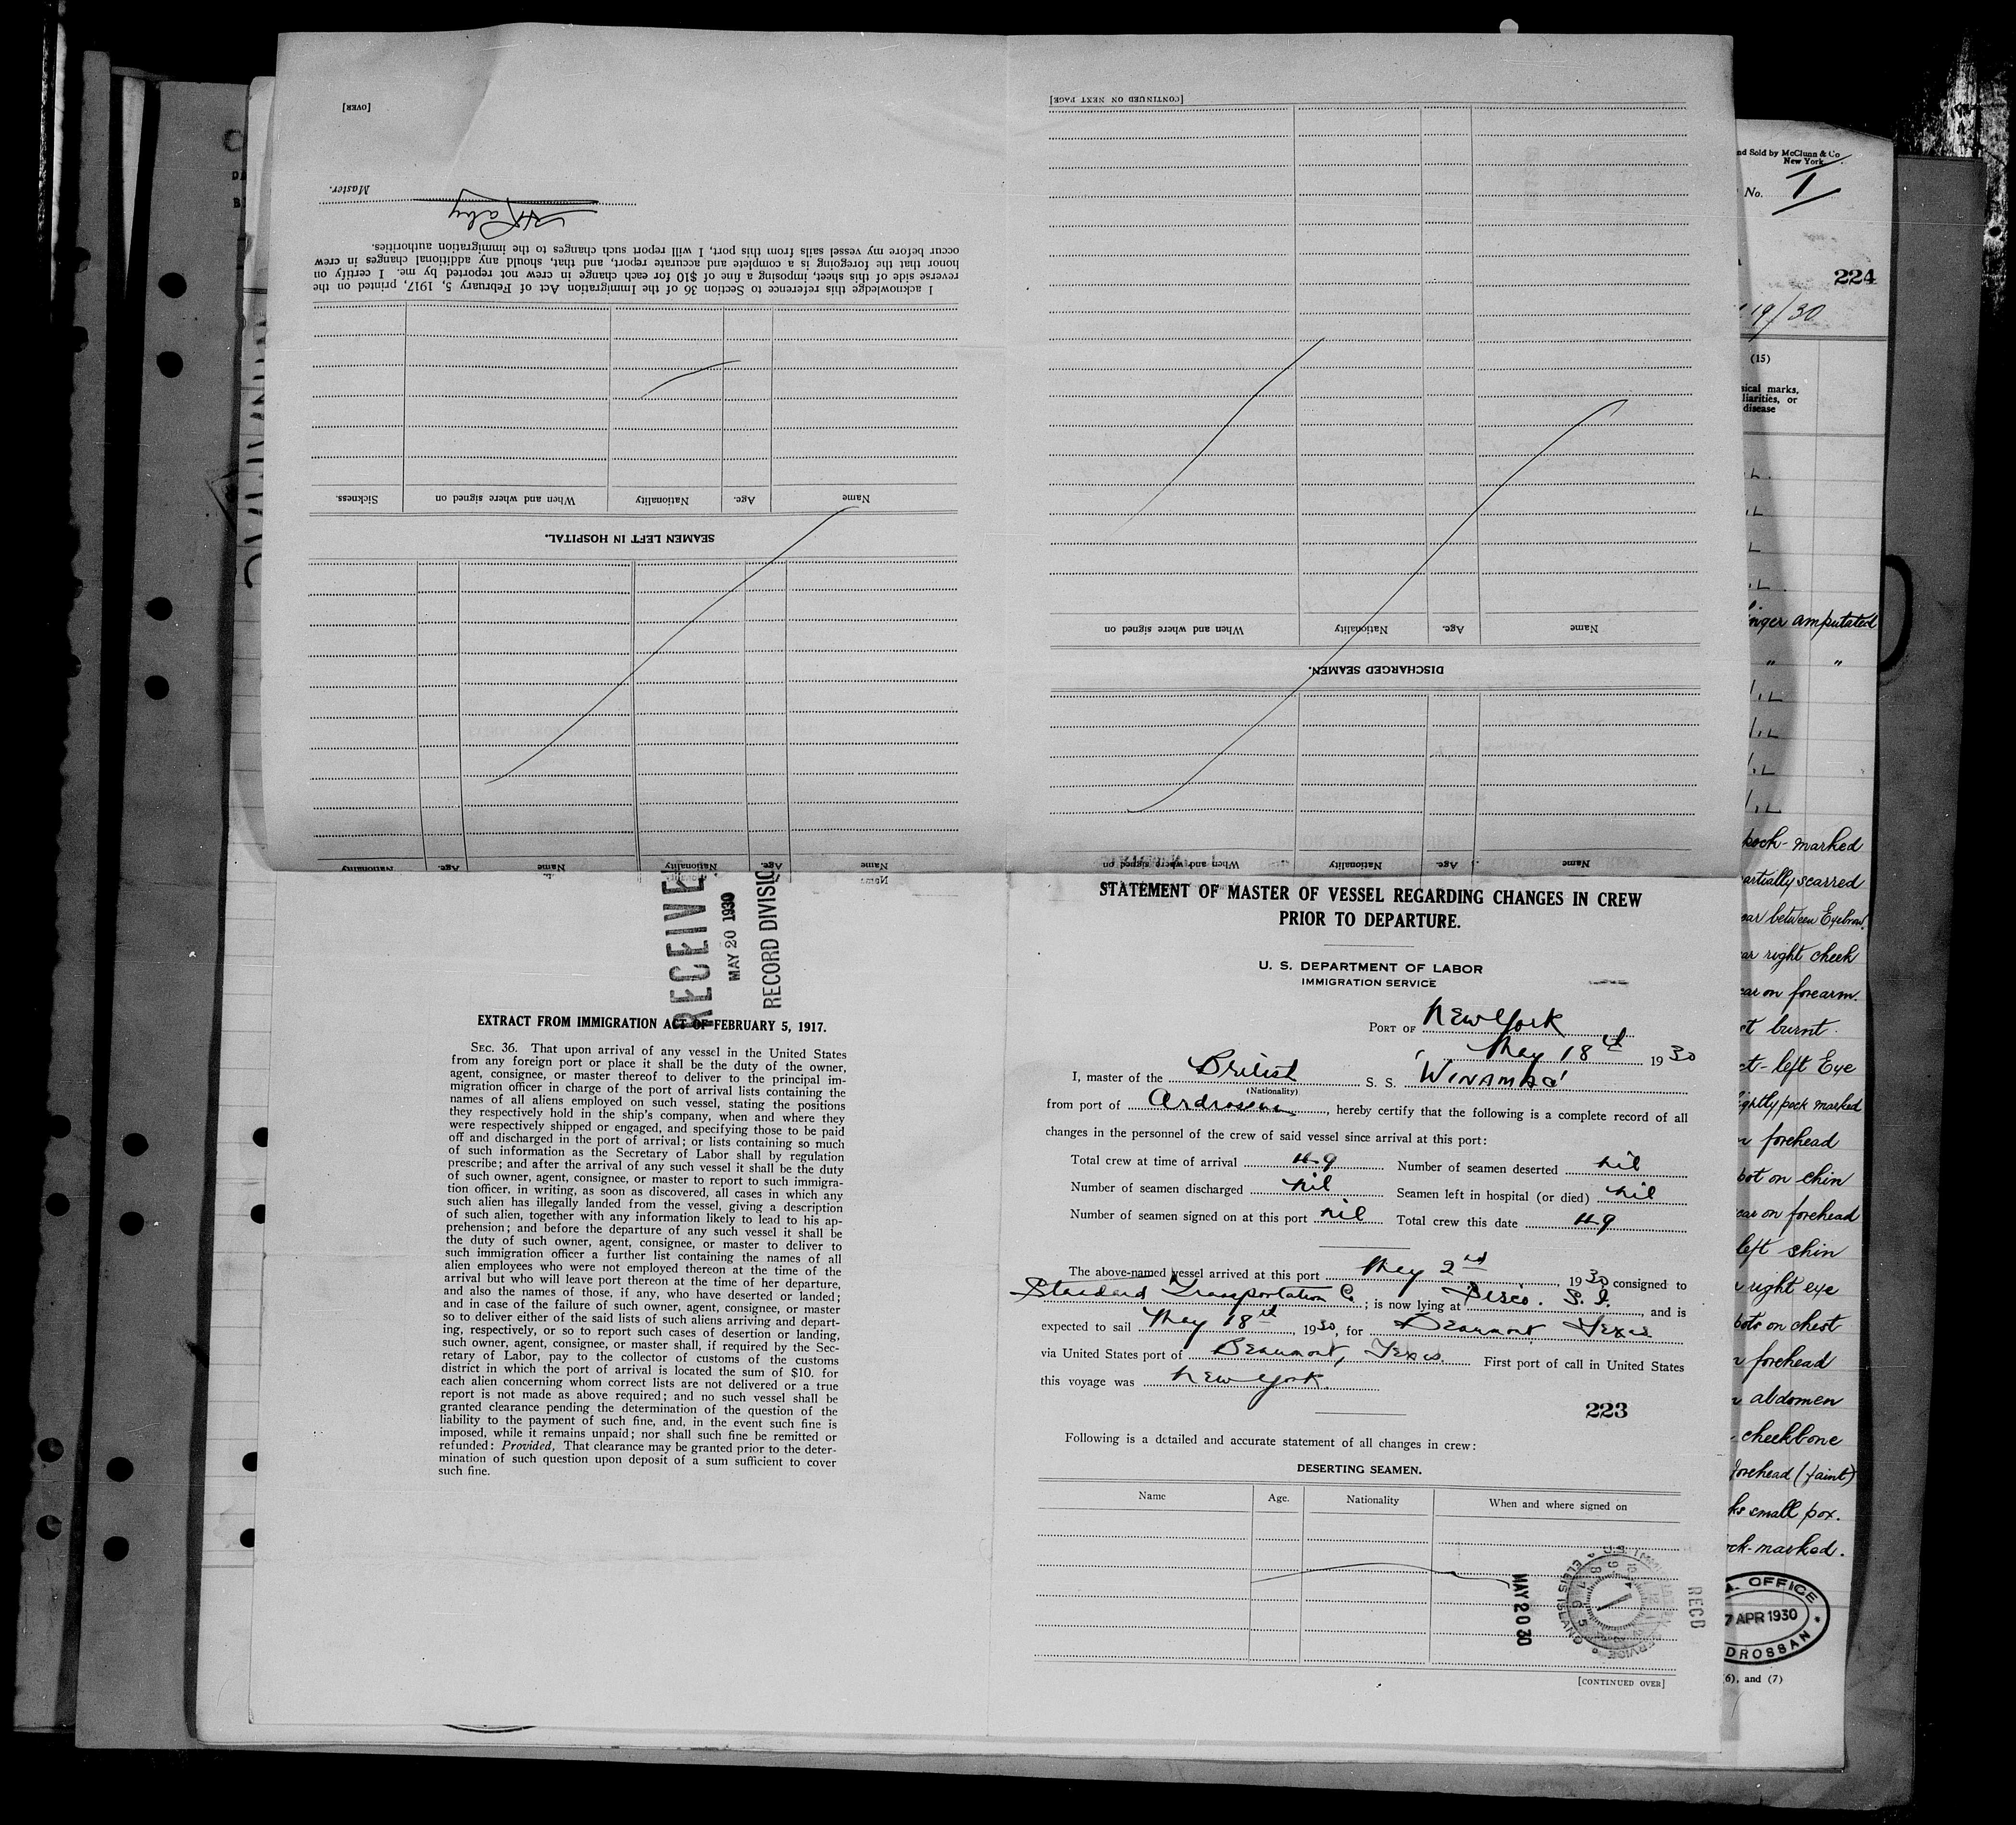 [OVER]
Master.
H Raby
I acknowledge this reference to Section 36 of the Immigration Act of February 5, 1917, printed on the
reverse side of this sheet, imposing a fine of $10 for each change in crew not reported by me. I certify on
honor that the foregoing is a complete and accurate report, and that, should any additional changes in crew
occur before my vessel sails from this port, I will report such changes to the immigration authorities.
Name Age. Nationality When and where signed on Sickness.
SEAMEN LEFT IN HOSPITAL.
Name Age. Nationality Name Age. Nationality
Name
[CONTINUED ON NEXT PAGE]
Name Age. Nationality When and where signed on
DISCHARGED SEAMEN.
Name Age. Nationality When and where signed on
RECEIVE
MAY 20 1930
RECORD DIVISIO
EXTRACT FROM IMMIGRATION ACT OF FEBRUARY 5, 1917.
SEC. 36. That upon arrival of any vessel in the United States
from any foreign port or place it shall be the duty of the owner,
agent, consignee, or master thereof to deliver to the principal im-
migration officer in charge of the port of arrival lists containing the
names of all aliens employed on such vessel, stating the positions
they respectively hold in the ship's company, when and where they
were respectively shipped or engaged, and specifying those to be paid
off and discharged in the port of arrival; or lists containing so much
of such information as the Secretary of Labor shall by regulation
prescribe; and after the arrival of any such vessel it shall be the duty
of such owner, agent, consignee, or master to report to such immigra-
tion officer, in writing, as soon as discovered, all cases in which any
such alien has illegally landed from the vessel, giving a description
of such alien, together with any information likely to lead to his ap-
prehension; and before the departure of any such vessel it shall be
the duty of such owner, agent, consignee, or master to deliver to
such immigration officer a further list containing the names of all
alien employees who were not employed thereon at the time of the
arrival but who will leave port thereon at the time of her departure,
and also the names of those, if any, who have deserted or landed;
and in case of the failure of such owner, agent, consignee, or master
so to deliver either of the said lists of such aliens arriving and depart-
ing, respectively, or so to report such cases of desertion or landing,
such owner, agent, consignee, or master shall, if required by the Sec-
retary of Labor, pay to the collector of customs of the customs
district in which the port of arrival is located the sum of $10. for
each alien concerning whom correct lists are not delivered or a true
report is not made as above required; and no such vessel shall be
granted clearance pending the determination of the question of the
liability to the payment of such fine, and, in the event such fine is
imposed, while it remains unpaid; nor shall such fine be remitted or
refunded: Provided, That clearance may be granted prior to the deter-
mination of such question upon deposit of a sum sufficient to cover
such fine.
STATEMENT OF MASTER OF VESSEL REGARDING CHANGES IN CREW
PRIOR TO DEPARTURE.
U. S. DEPARTMENT OF LABOR
IMMIGRATION SERVICE
PORT OF New York
May 18th 1930
I, master of the British S. S. "WINAMAC"
(Nationality)
from port of Ardrossan, hereby certify that the following is a complete record of all
changes in the personnel of the crew of said vessel since arrival at this port:
Total crew at time of arrival 49 Number of seamen deserted nil
Number of seamen discharged nil Seamen left in hospital (or died) nil
Number of seamen signed on at this port nil Total crew this date 49
The above-named vessel arrived at this port May 2nd, 1930 consigned to
Standard Transportation Co; is now lying at S. I., and is
expected to sail May 18th, 1930, for Beaumont Texas
via United States port of Beaumont, Texas. First port of call in United States
this voyage was New York.
223
Following is a detailed and accurate statement of all changes in crew:
DESERTING SEAMEN.
Name Age. Nationality When and where signed on
MAY 20 30
RECD
ELLIS ISLAND
[CONTINUED OVER]
nd Sold by McClunn & Co
New York
No. 1
224
19/30
(15)
ical marks,
liarities, or
disease
inger amputated
" "
pock-marked
artially scarred
ar between Eyebrow.
ar right cheek
car on forearm.
t burnt.
ct - left Eye
ightly pock marked
forehead
pot on chin
car on forehead
left shin
right eye
pots on chest
forehead
abdomen
cheekbone
forehead (faint)
ks small pox.
ock-marked.
OFFICE
7 APR 1930
DROSSAN
6), and (7)